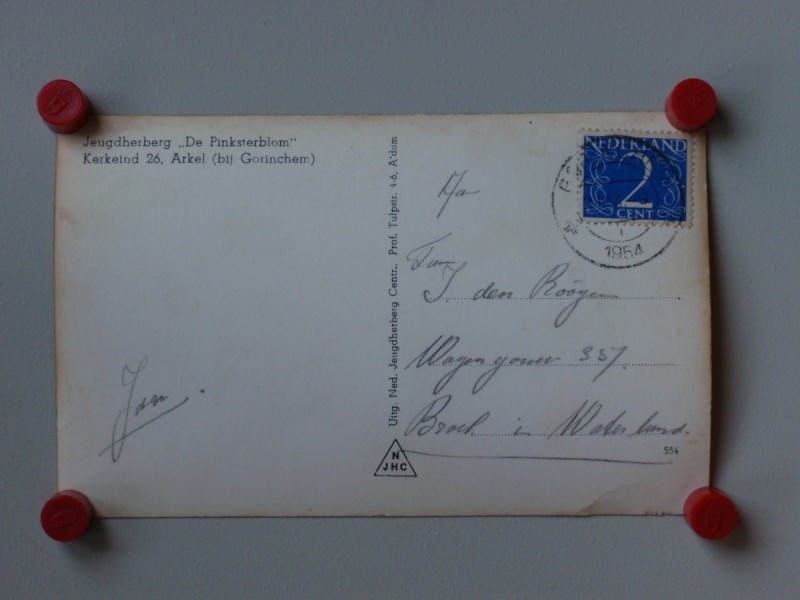 Jeugdherberg „De Pinksterblom"
Kerkeind 26, Arkel (bij Gorinchem)
Jan.
Uitg. Ned. Jeugdherberg Centr., Prof. Tulpstr. 4-6, A'dom
N
JHC
NEDERLAND
2
CENT
1954
Fam
J. den Rööyen
337.
Broek in Waterland.
554